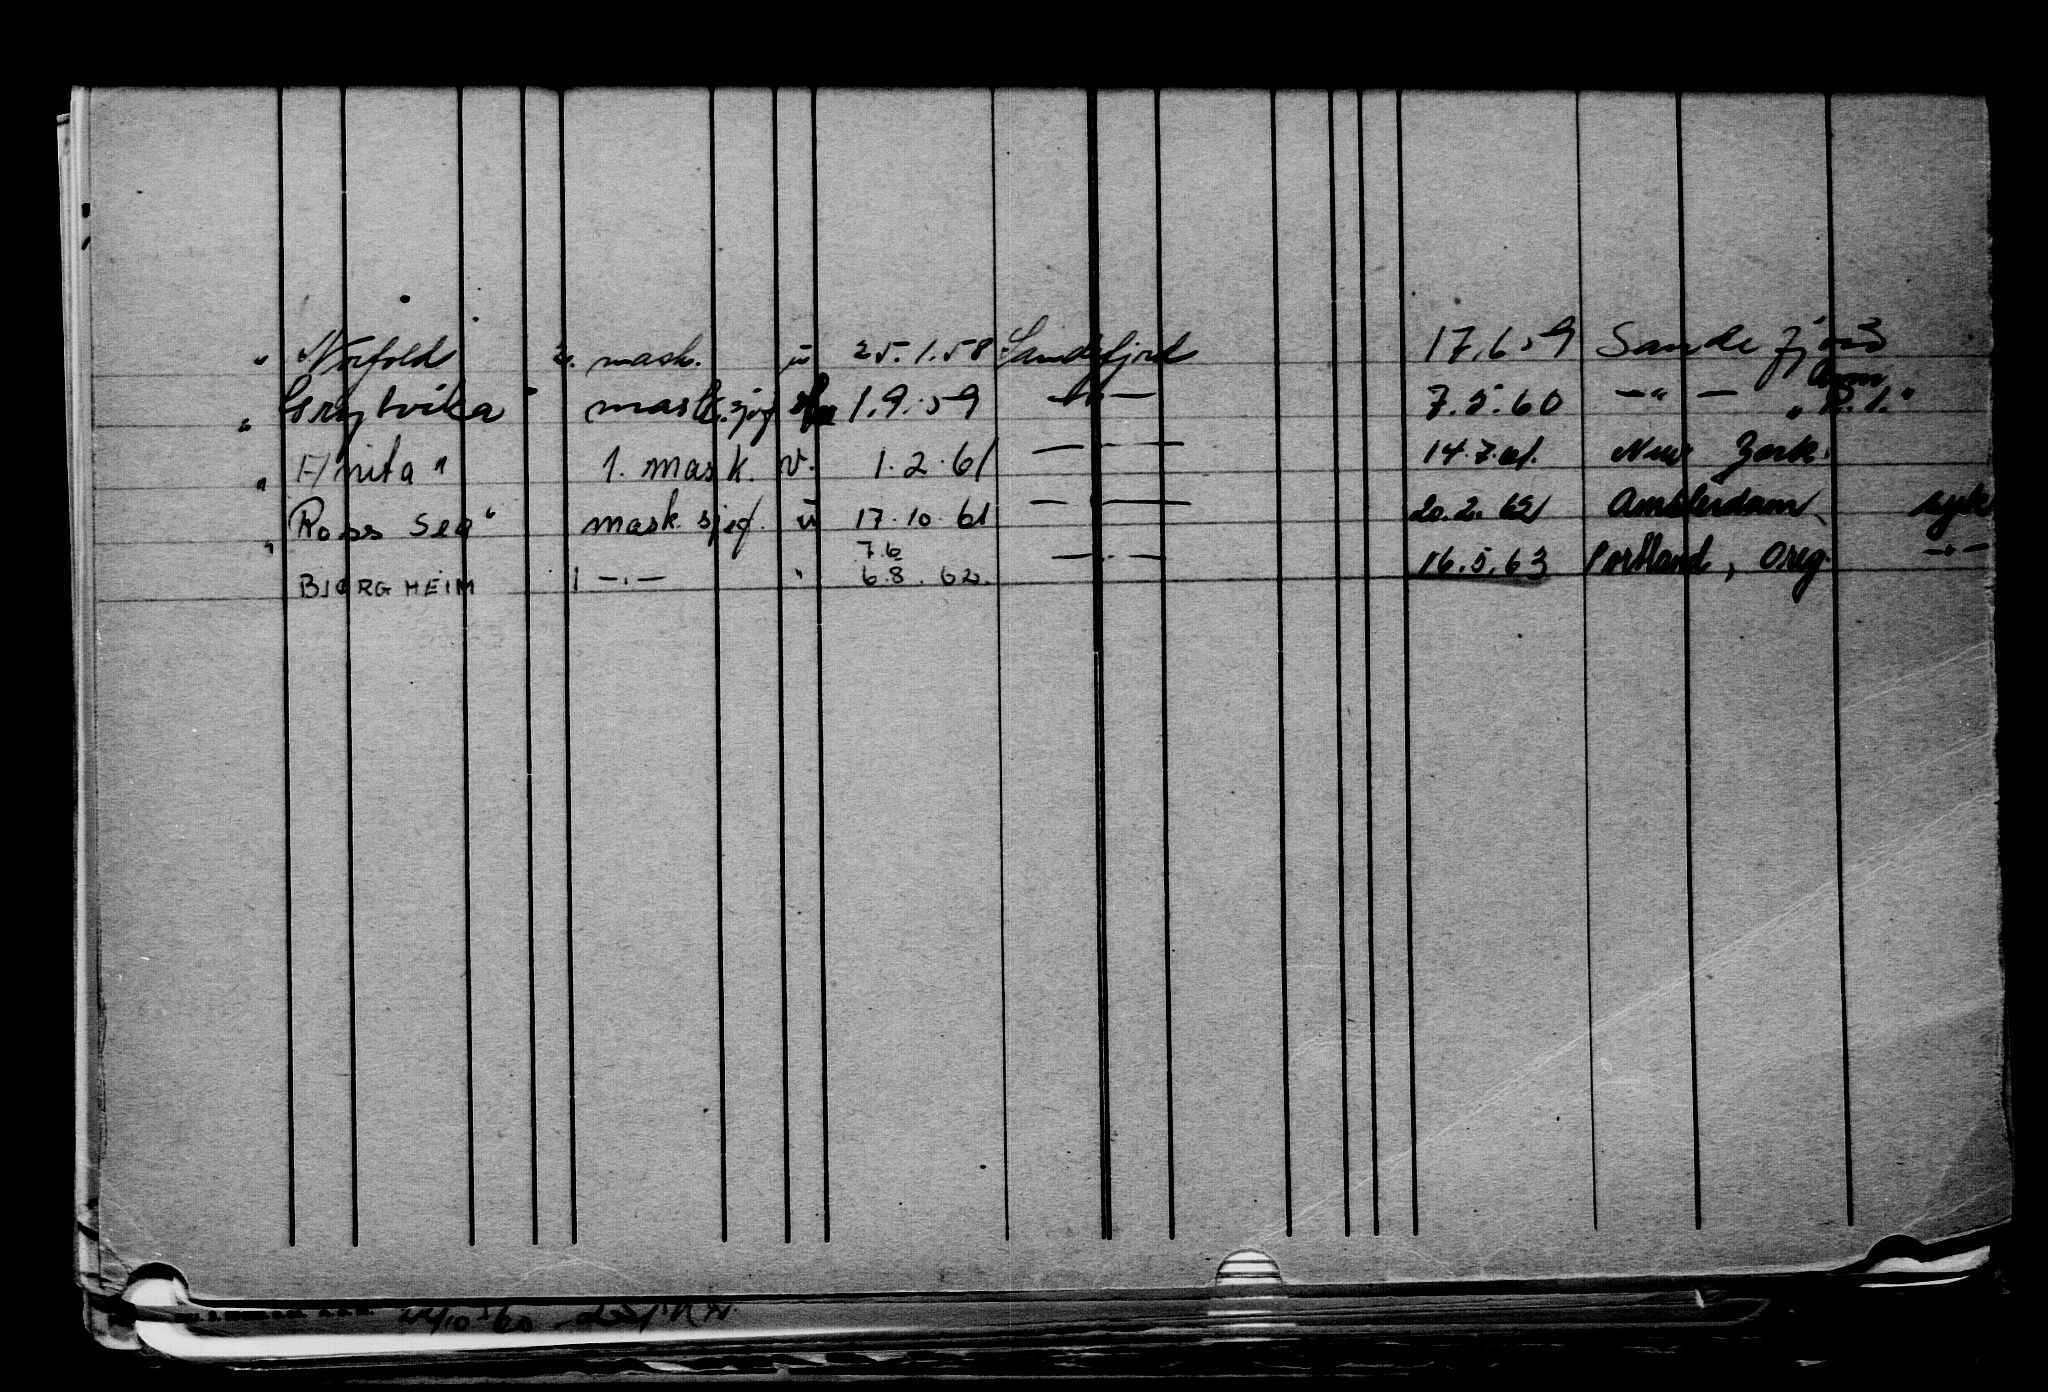 " "Norfold 2. mask. u 25.1.58 Sandefjord 17.6.59 Sandefjord
" Grytvika " mask.sjef 1.9.59 -"- 7.5.60 -"- "R.1."
" Anita " 1. mask. v. 1.2.61 — 14.7.61. New York.
" Ross Sea " mask. sjef. u 17.10.61 — 20.2.62 Amsterdam syk
" BJØRGHEIM 1 -.- " 7.6 6.8.62. -.- 16.5.63 Portland, Oreg. -"-